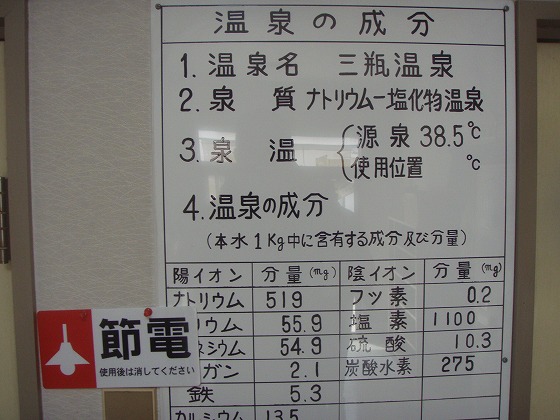 温泉の成分
1. 温泉名 三瓶温泉
2. 泉質 ナトリウムー塩化物温泉
3. 泉温 源泉 38.5℃
使用位置 ℃
4. 温泉の成分
(本水1Kg中に含有する成分及び分量)
陽イオン 分量(mg) 陰イオン 分量(mg)
ナトリウム 519 フッ素 0.2
リウム 55.9 塩素 1100
ネシウム 54.9 硫酸 10.3
ガン 2.1 炭酸水素 275
鉄 5.3
カルシウム 13.5
節電
使用後は消してください